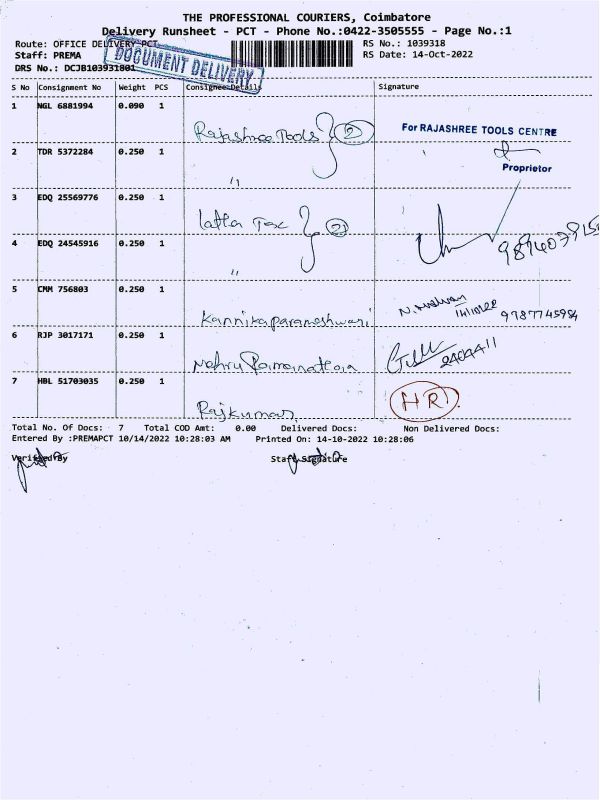 THE PROFESSIONAL COURIERS, Coimbatore
Delivery Runsheet - PCT - Phone No.:0422-3505555 - Page No.:1
Route: OFFICE DELIVERY PCT RS No.: 1039318
Staff: PREMA RS Date: 14-Oct-2022
DRS No.: DCJB103931801
DOCUMENT DELIVERY
S No Consignment No Weight PCS Consignee Details Signature
1 NGL 6881994 0.090 1 Rajashree Tools 2 For RAJASHREE TOOLS CENTRE
2 TDR 5372284 0.250 1 " Proprietor
3 EDQ 25569776 0.250 1 Tax 2
4 EDQ 24545916 0.250 1 "
5 CMM 756803 0.250 1 Kannikaparameshwari 14/10/22 9787745984
6 RJP 3017171 0.250 1 Nehru Ramanathan
7 HBL 51703035 0.250 1 Rajkumar HR
Total No. Of Docs: 7 Total COD Amt: 0.00 Delivered Docs: Non Delivered Docs:
Entered By :PREMAPCT 10/14/2022 10:28:03 AM Printed On: 14-10-2022 10:28:06
Verified By Staff Signature